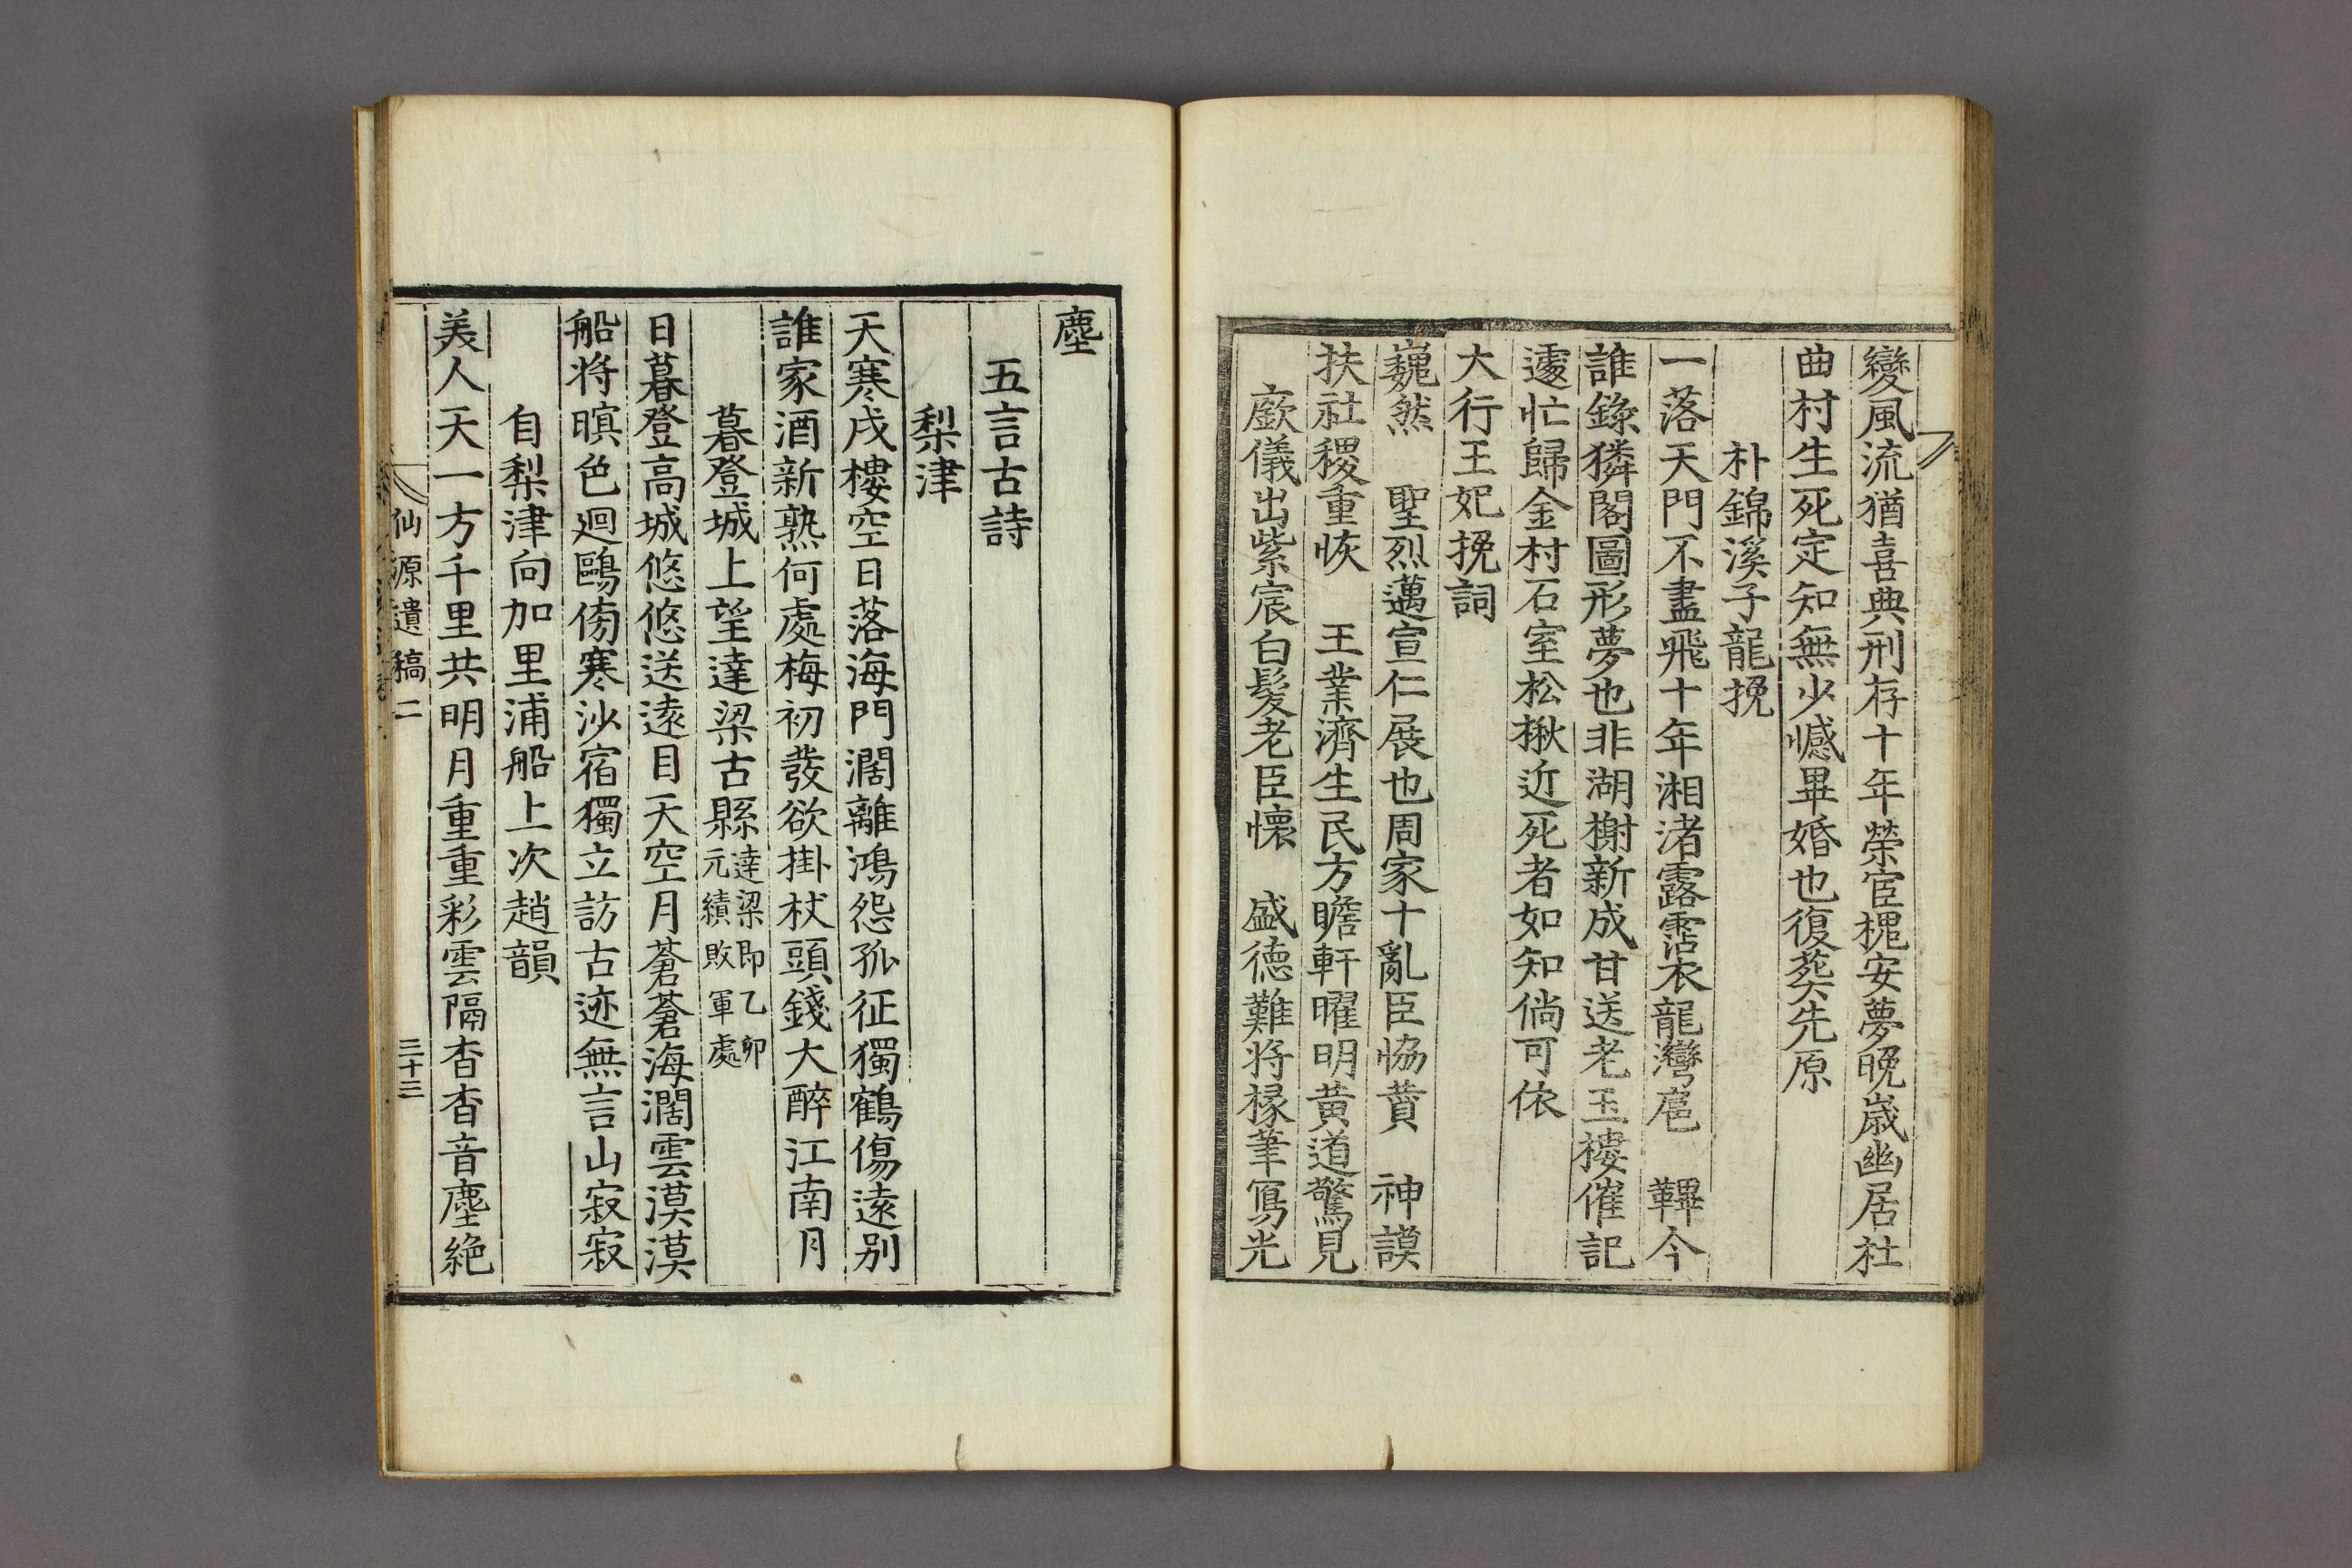 變風流猶喜典刑存十年榮宦槐安夢晩歲幽居社
曲村生死定知無少憾畢婚也復葬先原
朴錦溪子龍挽
一落天門不盡飛十年湘渚露霑衣龍灣扈 蹕今
誰錄獜閣圖形夢也非湖榭新成甘送老玉樓催記
遽忙歸金村石室松楸近死者如知倘可依
大行王妃挽詞
巍然 聖烈邁宣仁展也周家十亂臣恊賛 神謨
扶社稷重恢 王業濟生民方瞻軒曜明黃道驚見
廞儀出紫宸白髮老臣懷 盛德難將椽筆寫光
塵
五言古詩
梨津
天寒戍樓空日落海門濶離鴻怨孤征獨鶴傷遠别
誰家酒新熟何處梅初發欲掛杖頭錢大醉江南月
暮登城上望達梁古縣達梁即乙卯
元績敗軍處
日暮登高城悠悠送遠目天空月蒼蒼海濶雲漠漠
船將暝色迴鷗傍寒沙宿獨立訪古迹無言山寂寂
自梨津向加里浦船上次趙韻
美人天一方千里共明月重重彩雲隔杳杳音塵絶
仙源遺稿二 三十三